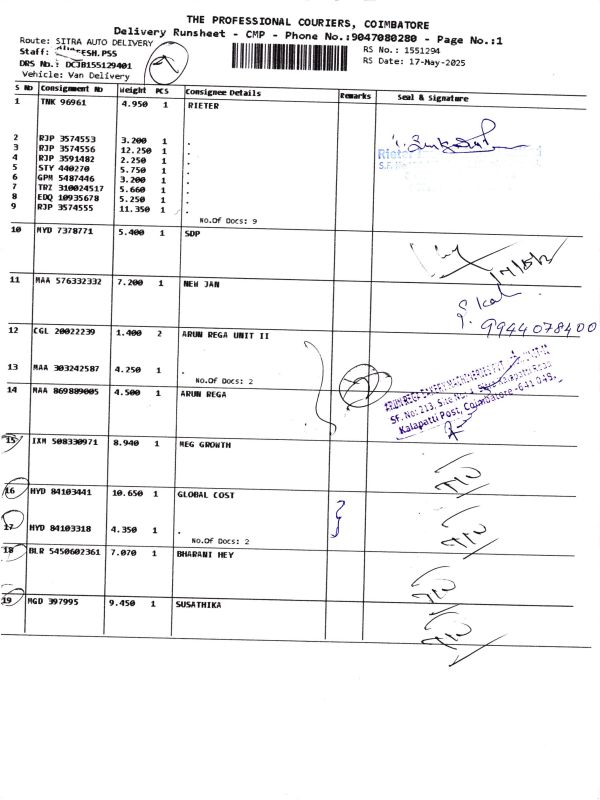 THE PROFESSIONAL COURIERS, COIMBATORE
Delivery Runsheet - CMP - Phone No.:9047080280 - Page No.:1
Route: SITRA AUTO DELIVERY
RS No.: 1551294
Staff: ESH.PSS
RS Date: 17-May-2025
DRS No.: DCJB155129401
Vehicle: Van Delivery
S No Consignment No Weight PCS Consignee Details Remarks Seal & Signature
1 TNK 96961 4.950 1 RIETER
2 RJP 3574553 3.200 1 .
3 RJP 3574556 12.250 1 .
4 RJP 3591482 2.250 1 .
5 STY 440270 5.750 1 .
6 GPM 5487446 3.200 1 .
7 TRZ 310024517 5.660 1 .
8 EDQ 10935678 5.250 1 .
9 RJP 3574555 11.350 1 .
No.Of Docs: 9
Rieter
S.F.
10 MYD 7378771 5.400 1 SDP
11 MAA 576332332 7.200 1 NEW JAN
9944078400
12 CGL 20022239 1.400 2 ARUN REGA UNIT II
13 MAA 303242587 4.250 1 .
No.Of Docs: 2
14 MAA 869889005 4.500 1 ARUN REGA
SF. No: 213, Site No.
Kalapatti Road
Kalapatti Post, Coimbatore - 641 048.
15 IXM 508330971 8.940 1 MEG GROWTH
16 HYD 84103441 10.650 1 GLOBAL COST
17 HYD 84103318 4.350 1 .
No.Of Docs: 2
18 BLR 5450602361 7.070 1 BHARANI HEY
19 MGD 397995 9.450 1 SUSATHIKA